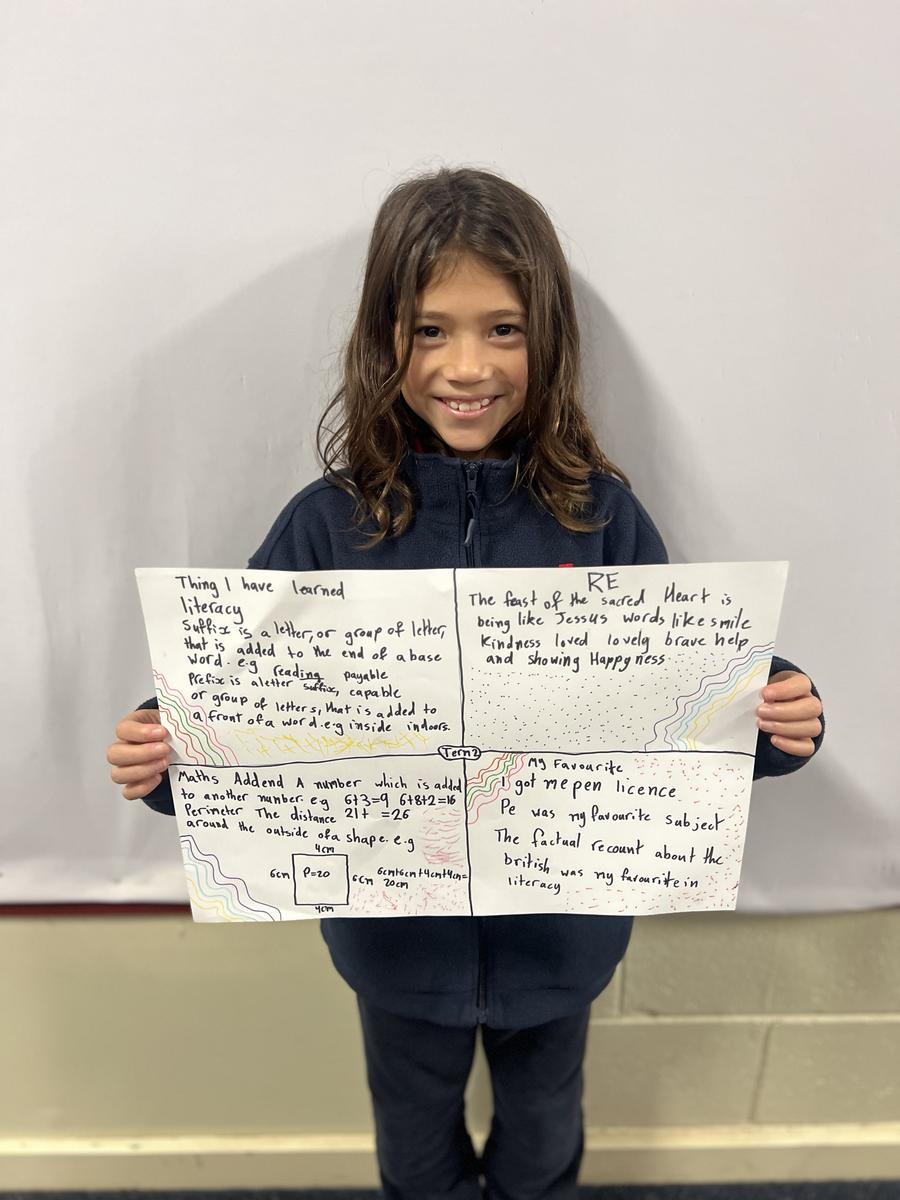 Thing I have learned
literacy
Suffix is a letter, or group of letter,
that is added to the end of a base
word. e.g reading payable
Prefix is a letter suffix, capable
or group of letters, that is added to
a front of a word. e.g inside indoors.
RE
The feast of the sacred Heart is
being like Jessus words like smile
Kindness loved lovely brave help
and showing Happyness
Term 2
Maths Addend A number which is added
to another number. e.g 6+3=9 6+8+2=16
Perimeter The distance 21+ =26
around the outside of a shape. e.g
4cm
6cm P=20 6cm 6cm+6cm+4cm+4cm=
20cm
4cm
My Favourite
I got me pen licence
Pe was my favourite subject
The factual recount about the
british was my favourite in
literacy